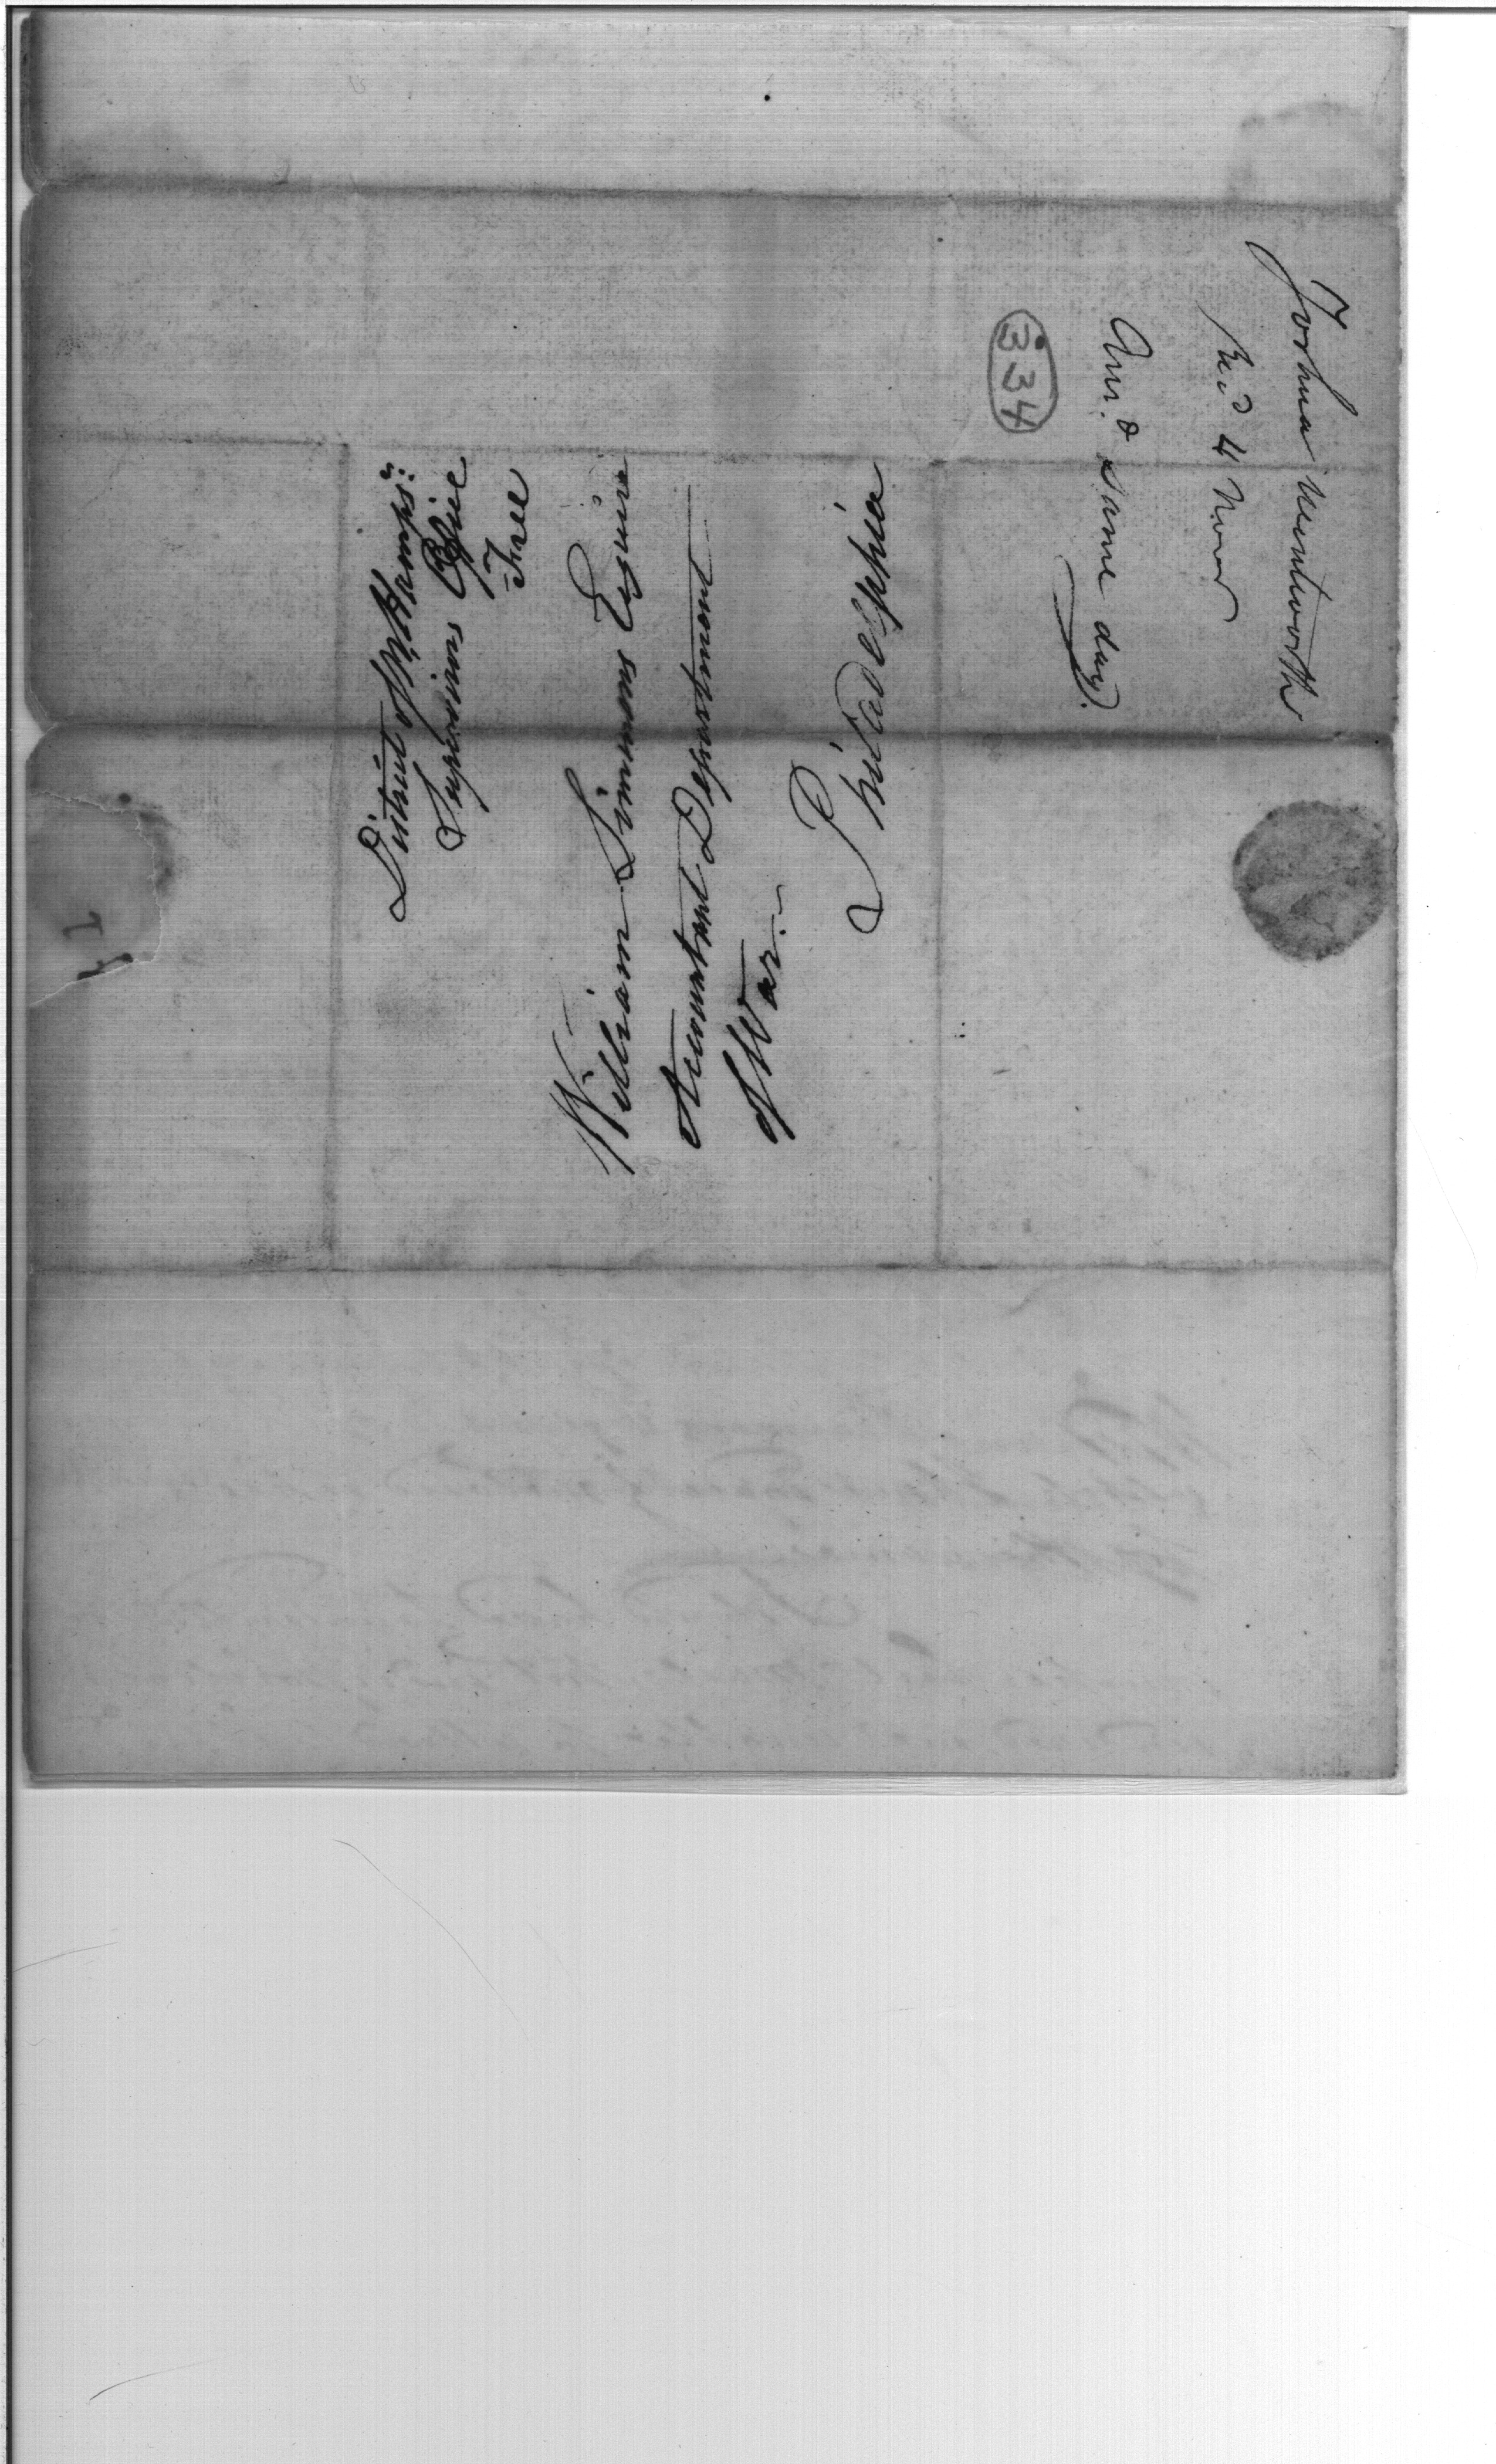 District of N Hampsr
Supervisors Office
Free
William Simmons Esquire
Accountant Department
of War.
Philadelphia
Joshua Wentworth
Rec.d 4 Novr
Ansd. same day.
334